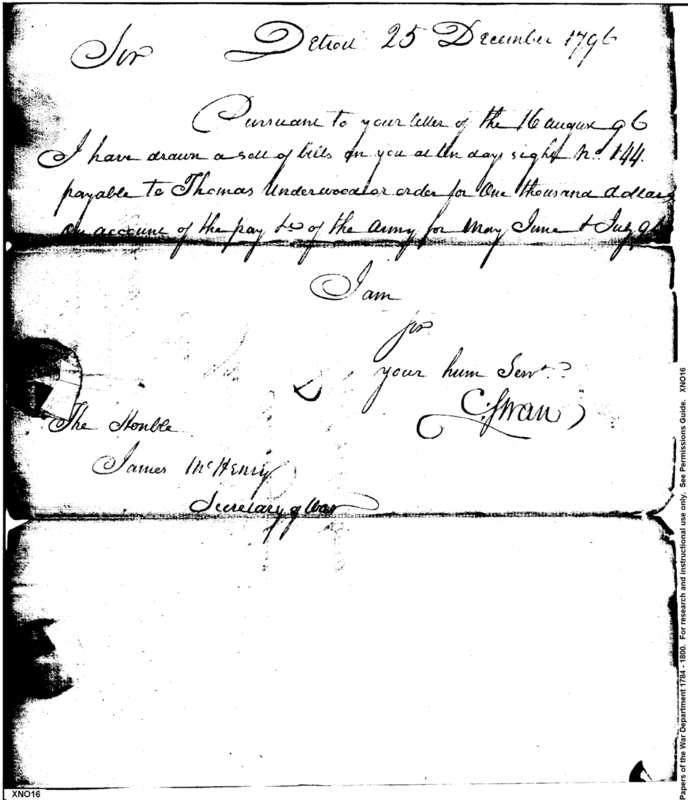 Detroit 25 December 1796
Sir
Pursuant to your letter of the 16 august 96
I have drawn a sett of bills on you at ten days sight No. 144.
payable to Thomas Underwood or order for One thousand dollars
on account of the pay &c of the Army for May June & July 96
I am
your hum Servt.
C. Swan
The Honble
James McHenry
Secretary of War
XNO16
Papers of the War Department 1784 - 1800. For research and instructional use only. See Permissions Guide. XNO16